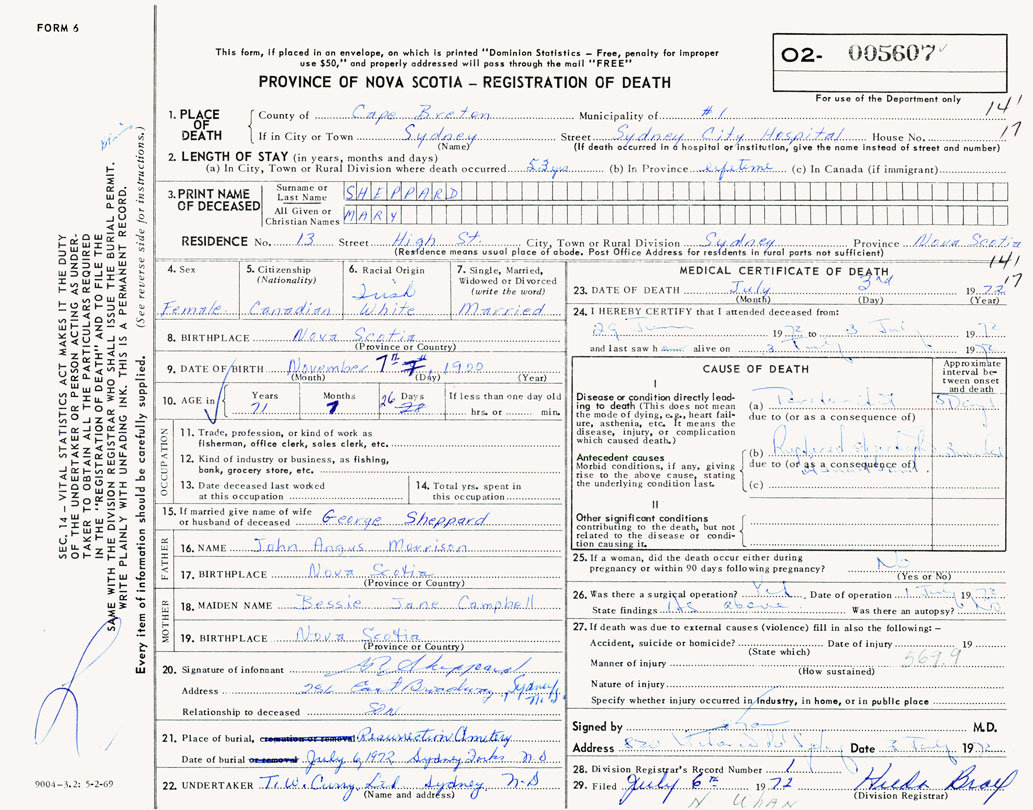 FORM 6
This form, if placed in an envelope, on which is printed "Dominion Statistics — Free, penalty for improper
use $50," and properly addressed will pass through the mail "FREE"
PROVINCE OF NOVA SCOTIA — REGISTRATION OF DEATH
O2- 005607
For use of the Department only
141
17
1. PLACE OF DEATH
County of Cape Breton Municipality of #1
If in City or Town Sydney Street Sydney City Hospital House No.
(Name) (If death occurred in a hospital or institution, give the name instead of street and number)
2. LENGTH OF STAY (in years, months and days)
(a) In City, Town or Rural Division where death occurred 53 yrs (b) In Province lifetime (c) In Canada (if immigrant)
3. PRINT NAME OF DECEASED
Surname or Last Name SHEPPARD
All Given or Christian Names MARY
RESIDENCE No. 13 Street High St. City, Town or Rural Division Sydney Province Nova Scotia
(Residence means usual place of abode. Post Office Address for residents in rural parts not sufficient)
4. Sex
Female
5. Citizenship
(Nationality)
Canadian
6. Racial Origin
Irish
White
7. Single, Married,
Widowed or Divorced
(write the word)
Married
8. BIRTHPLACE Nova Scotia
(Province or Country)
9. DATE OF BIRTH November 7th 1900
(Month) (Day) (Year)
10. AGE in
Years Months Days If less than one day old
71 7 26 hrs. or min.
OCCUPATION
11. Trade, profession, or kind of work as
fisherman, office clerk, sales clerk, etc.
12. Kind of industry or business, as fishing,
bank, grocery store, etc.
13. Date deceased last worked
at this occupation
14. Total yrs. spent in
this occupation
15. If married give name of wife
or husband of deceased George Sheppard
FATHER
16. NAME John Angus Morrison
17. BIRTHPLACE Nova Scotia
(Province or Country)
MOTHER
18. MAIDEN NAME Bessie Jane Campbell
19. BIRTHPLACE Nova Scotia
(Province or Country)
20. Signature of informant Sheppard
Address 256 East Broadway, Sydney N.S
Relationship to deceased Son
21. Place of burial, cremation or removal Resurrection Cemetery
Date of burial or removal July 6, 1972 Sydney Forks N S
22. UNDERTAKER T. W. Curry Ltd Sydney N-S
(Name and address)
141
17
MEDICAL CERTIFICATE OF DEATH
23. DATE OF DEATH July 3rd 1972
(Month) (Day) (Year)
24. I HEREBY CERTIFY that I attended deceased from:
29 June 1972 to 3 July 1972
and last saw h alive on 3 July 1972
CAUSE OF DEATH
Approximate
interval be-
tween onset
and death
I
Disease or condition directly lead-
ing to death (This does not
mean the mode of dying, e.g., heart fail-
ure, asthenia, etc. It means the
disease, injury, or complication
which caused death.)
(a) 5 Days
due to (or as a consequence of)
Antecedent causes
Morbid conditions, if any, giving
rise to the above cause, stating
the underlying condition last.
(b) Ruptured
due to (or as a consequence of)
(c)
II
Other significant conditions
contributing to the death, but not
related to the disease or condi-
tion causing it.
25. If a woman, did the death occur either during
pregnancy or within 90 days following pregnancy? No
(Yes or No)
26. Was there a surgical operation? Yes Date of operation 1 July 1972
State findings As above Was there an autopsy? No
27. If death was due to external causes (violence) fill in also the following: —
Accident, suicide or homicide? Date of injury 19
(State which)
569.9
Manner of injury
(How sustained)
Nature of injury
Specify whether injury occurred in industry, in home, or in public place
Signed by M.D.
Address Date 3 July 1972
28. Division Registrar's Record Number 1
29. Filed July 6th 1972 Hilda
(Division Registrar)
SEC. 14 — VITAL STATISTICS ACT MAKES IT THE DUTY
OF THE UNDERTAKER OR PERSON ACTING AS UNDER-
TAKER TO OBTAIN ALL THE PARTICULARS REQUIRED
IN THE "REGISTRATION OF DEATH" AND TO FILE THE
SAME WITH THE DIVISION REGISTRAR WHO SHALL ISSUE THE BURIAL PERMIT.
WRITE PLAINLY WITH UNFADING INK. THIS IS A PERMANENT RECORD.
Every item of information should be carefully supplied. (See reverse side for instructions.)
9004—3.2: 5-2-69